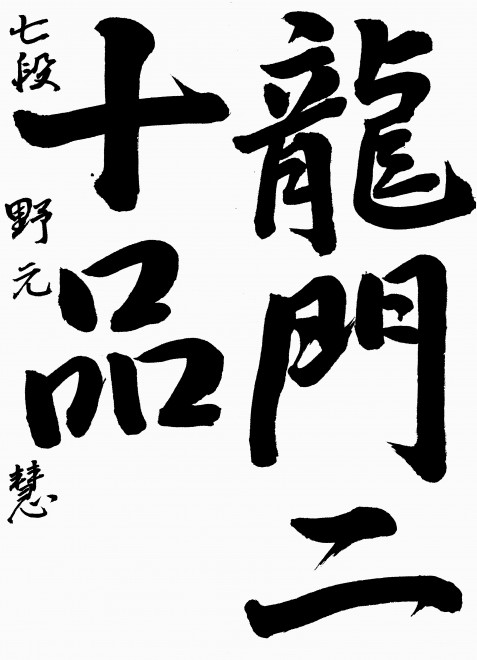 龍門二
十品
七段 野元 慧